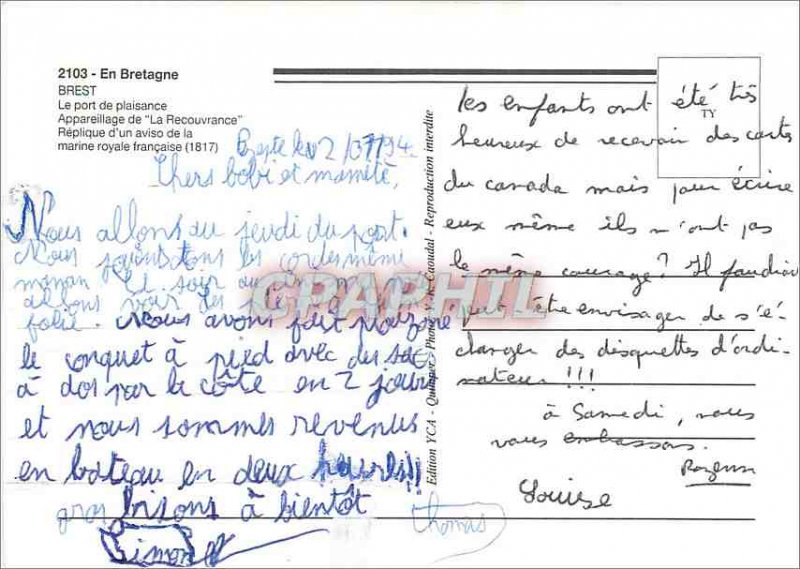 2103 - En Bretagne
BREST
Le port de plaisance
Appareillage de "La Recouvrance"
Réplique d'un aviso de la
marine royale française (1817)
2/07/94
Chers bobi et mamité,
Nous allons au jeudi du port.
Nous sautons les cordes même
maman. Le soir au
allons voir les
folie. Nous avons fait
le conquet à pied avec des sac
à dos par la côte en 2 jours
et nous sommes revenus
en bateau en deux heures!!
gros bisons à bientôt
Simon
Edition YCA - Quimper - Photo Y.-R. Caoudal - Reproduction interdite
TY
les enfants ont été très
heureux de recevoir des cartes
du canada mais pour écrire
eux même ils n'ont pas
le même courage? Il faudrait
peut-être envisager de s'é-
changer des disquettes d'ordi-
nateur!!!
à Samedi, nous
vous embrassons.
Rozenn
Louise
thomas
CPAPHIL